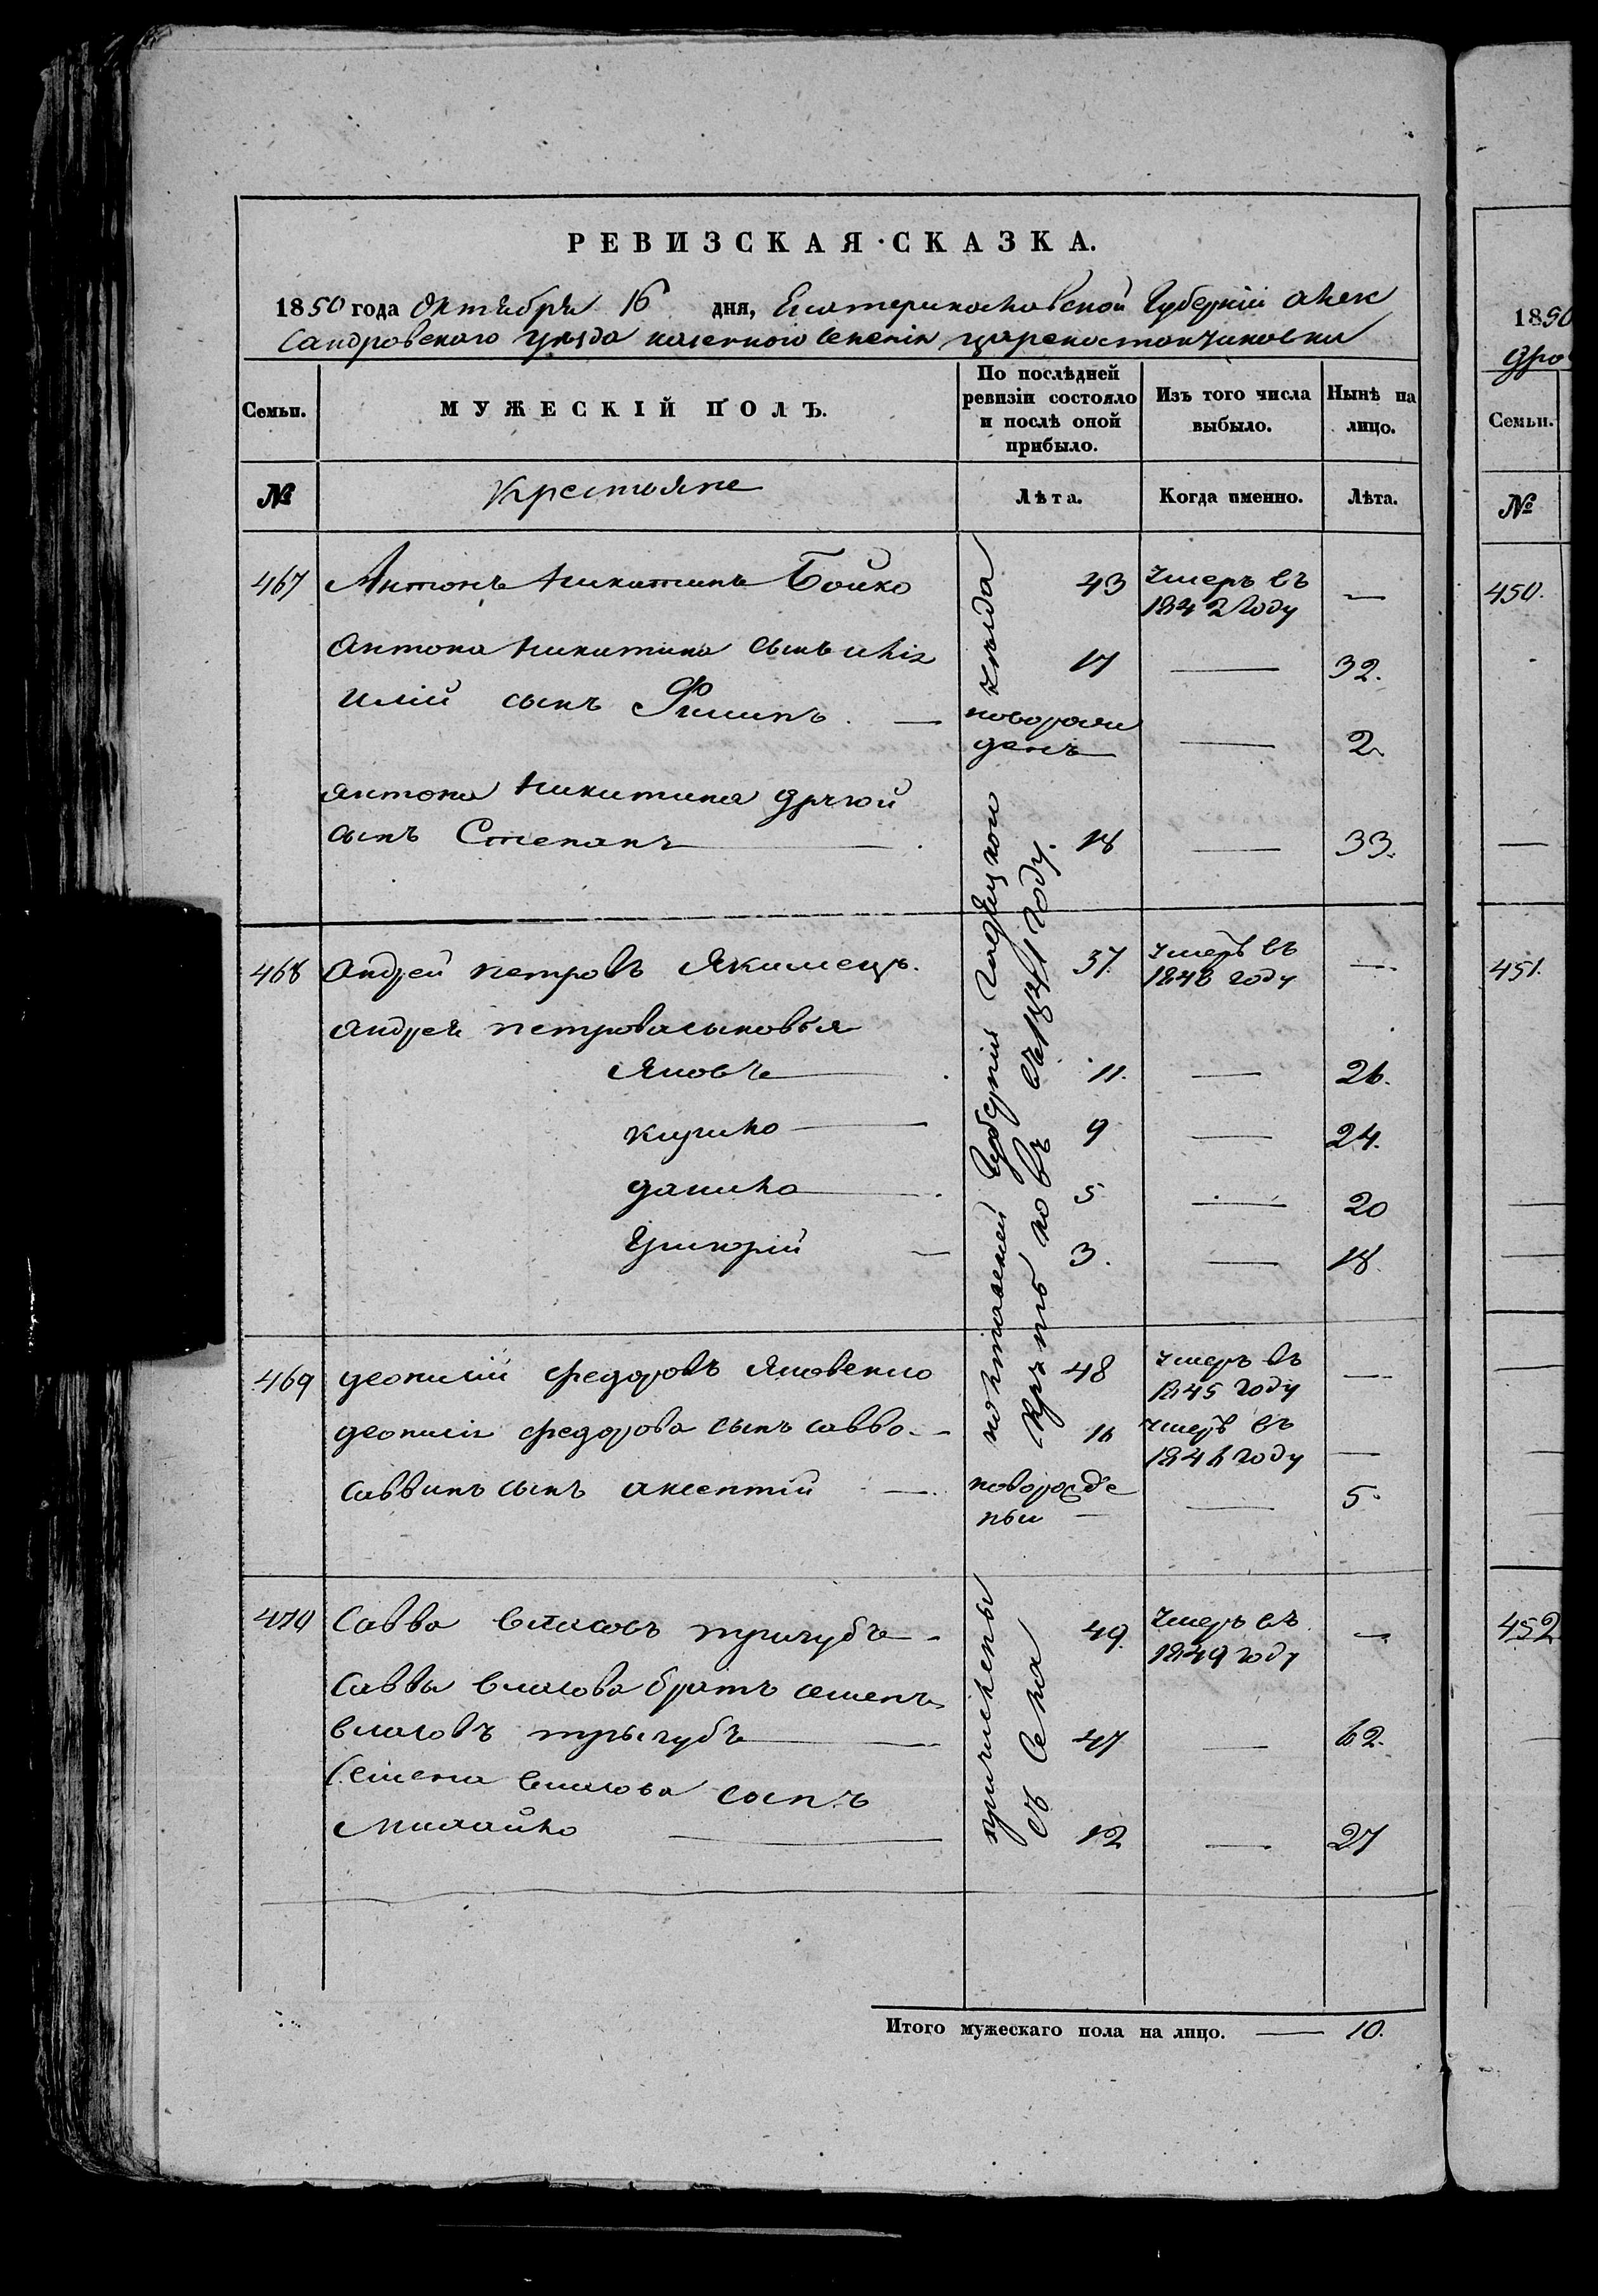 РЕВИЗСКАЯ СКАЗКА.
1850 года Октября 16 дня, Екатеринославской Губерніи Алек
сандровского уезда казенного селенія
Семьи.
МУЖЕСКІЙ ПОЛЪ.
По послѣдней ревизіи состояло и послѣ оной прибыло.
Изъ того числа выбыло.
Нынѣ на лицо.
№
Крестьяне
Лѣта.
Когда именно.
Лѣта.
467 Антонъ Никитинъ Бойко 43 Умеръ въ 1842 году —
Антона Никитина сынъ илія 17 — 32.
иліи сынъ Филипъ. — новорожденъ — 2.
Антона Никитина другой
сынъ Степанъ 18 — 33.
468 Андрей петровъ Якимецъ. 37. умеръ въ 1848 году —
Андрея петрова сыновья
Яковъ 11. — 26.
кирило 9 — 24.
данило 5 — 20
Григорій 3. — 18.
469 деонисій федоровъ Яковенко 48 умеръ въ 1845 году —
деонисія федорова сынъ савва — 16 умеръ въ 1846 году —
саввинъ сынъ аксентій — новорожде
ный — 5.
470 Савва власовъ тригубъ — 49. Умеръ въ 1849 году —
Саввы власова братъ семенъ
власовъ тригубъ 47 — 62.
Семена власова сынъ
михайло 12 — 27
полтавской Губерніи Гадяцкого уезда
въ 1841 году.
причислены
съ села
Итого мужескаго пола на лицо. — 10.
1850
дро
Семьи.
№
450.
451.
452